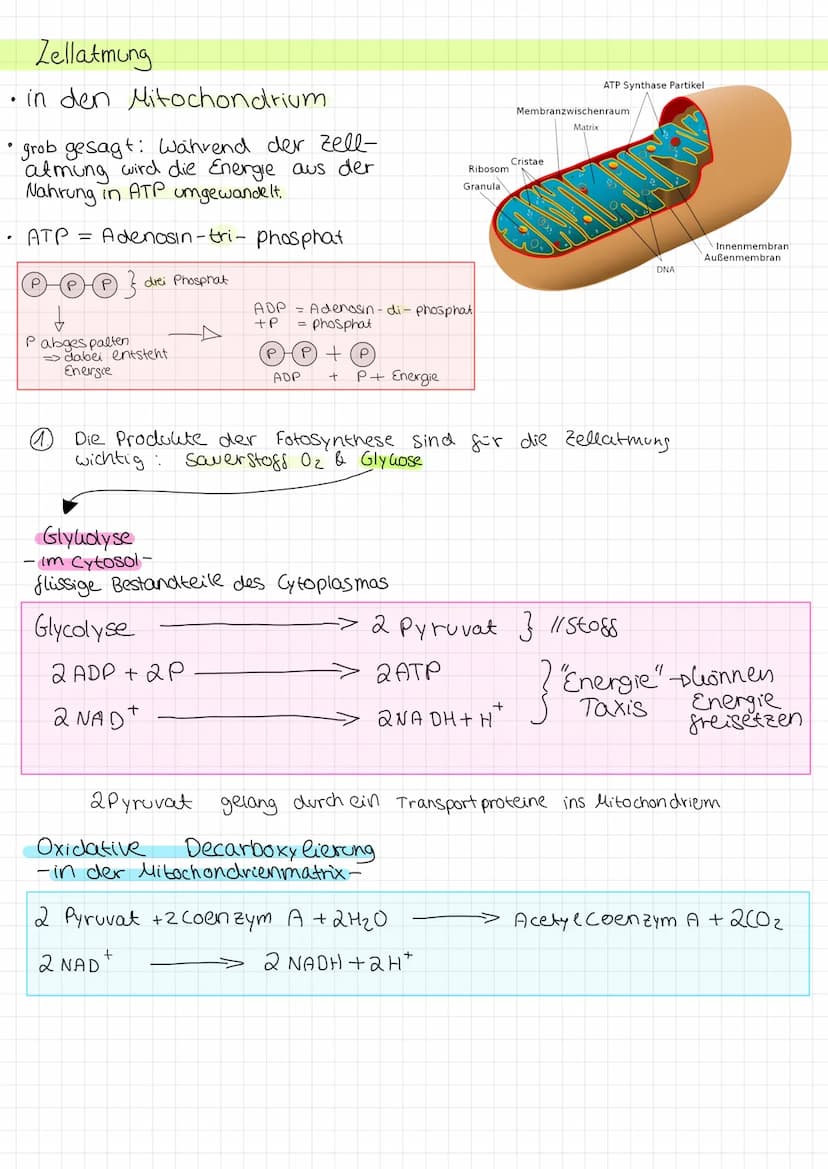 Zellatmung
• in den Mitochondrium
• grob gesagt: Während der Zell-
atmung wird die Energie aus der
Nahrung in ATP umgewandelt.
• ATP = Adenosin-tri-phosphat
ATP Synthase Partikel
Membranzwischenraum
Matrix
Cristae
Ribosom
Granula
Innenmembran
Außenmembran
DNA
P P P } drei Phosphat
P abgespalten
⇒ dabei entsteht
Energie
ADP = Adenosin-di-phosphat
+P = phosphat
P P + P
ADP + P + Energie
① Die Produkte der Fotosynthese sind für die Zellatmung
wichtig: Sauerstoff O₂ & Glykose
Glykolyse
- im Cytosol -
flüssige Bestandteile des Cytoplasmas
Glycolyse → 2 Pyruvat } //Stoff
2 ADP + 2P → 2 ATP
2 NAD⁺ → 2 NADH + H⁺
} "Energie" → können
Taxis Energie
freisetzen
2 Pyruvat gelang durch ein Transportproteine ins Mitochondrium
Oxidative Decarboxylierung
- in der Mitochondrienmatrix -
2 Pyruvat + 2 Coenzym A + 2H₂O → Acetyl Coenzym A + 2CO₂
2 NAD⁺ → 2 NADH + 2H⁺